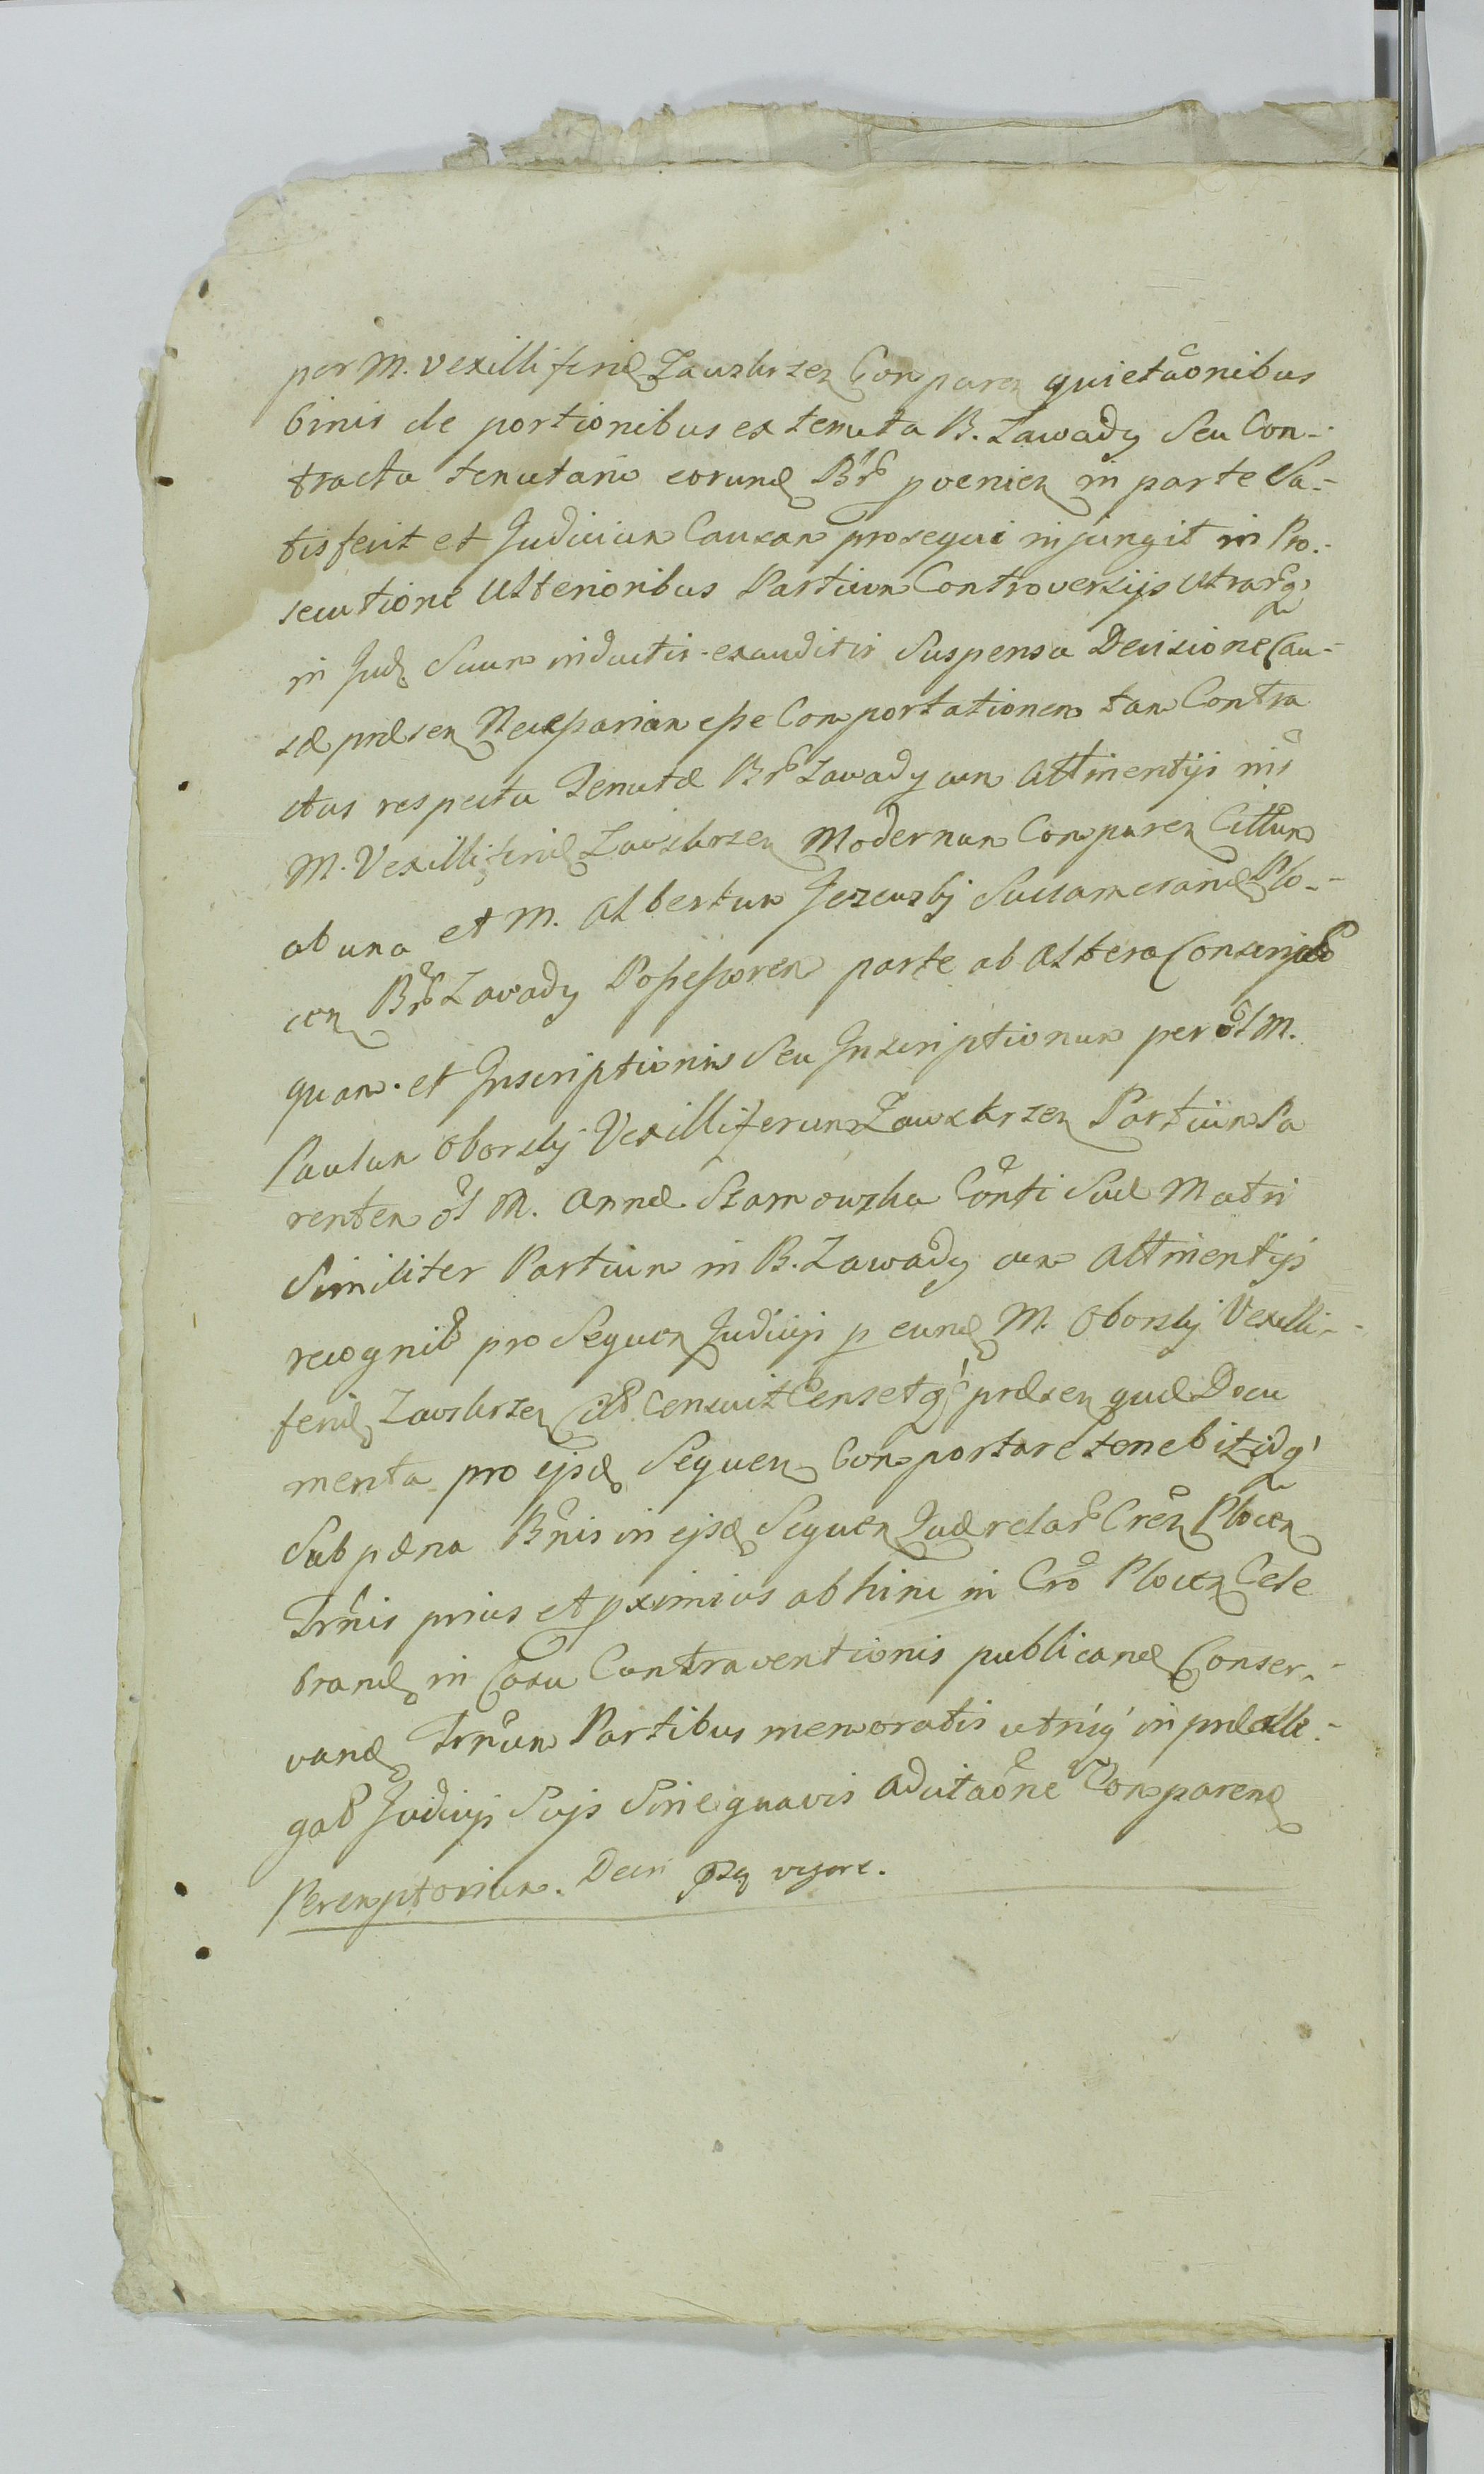 per M. Vexilliferū Zawskrzen Comparen quietaõnibus
binis de portionibus ex tenuta B. Zawady Seu Con-
tractu tenutario eorund Brū pvenien in parte Sa-
tisfecit et Judicium Causam prosequi injungit in Pro-
secutione Ulterioribus Partium Controversijs utrarq
in Jud Suum inductis exauditis Suspensa Decisione Cau-
sæ præsen Necessariam esse Comportationem tam Contra
ctus respectu Tenutæ Zawady cum Attinentijs
M. Vexilliferū Zawskrzen Modernum Comparen
ab una et M. Albertum Jezewskj Succamerarū Plo-
cen Zawady Possessorem parte ab Altera
quam et Inscriptionis Seu Inscriptionum per ol M.
Paulum Oborskj Vexilliferum Zawskrzen Partium Pa
rentem ol M. Annæ Szamowska Cõnti Suæ Matri
Similiter Partium in B. Zawady cum Attinentijs
recognit pro Sequen Judicijs p eund M. Oborskj Vexilli-
ferū Zawskrzen Censuit Censetq præsen quæ Docu
menta pro ejsd Sequen Comportare tenebit idq
Sub pæna Bñnis in ejsd Sequen Quærelar Plocen
Trñis prius et pximius ab hinc in Crõ Plocen Cele
brand in Casu Contraventionis publicand Conser-
vand Trñum Partibus memoratis utrisq in præalle-
gat Judicijs Sujs Sine quavis Adcitaõne Comparend
Peremptorium. Decri vigore.